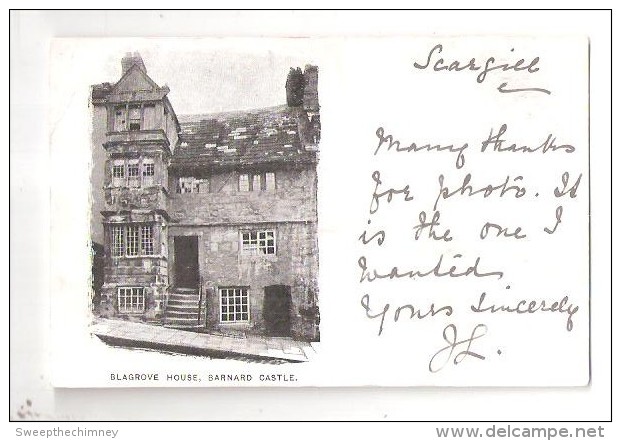 Scargill
Many thanks
for photo. It
is the one I
wanted
Yours sincerely
JL.
BLAGROVE HOUSE, BARNARD CASTLE.
Sweepthechimney
www.delcampe.net